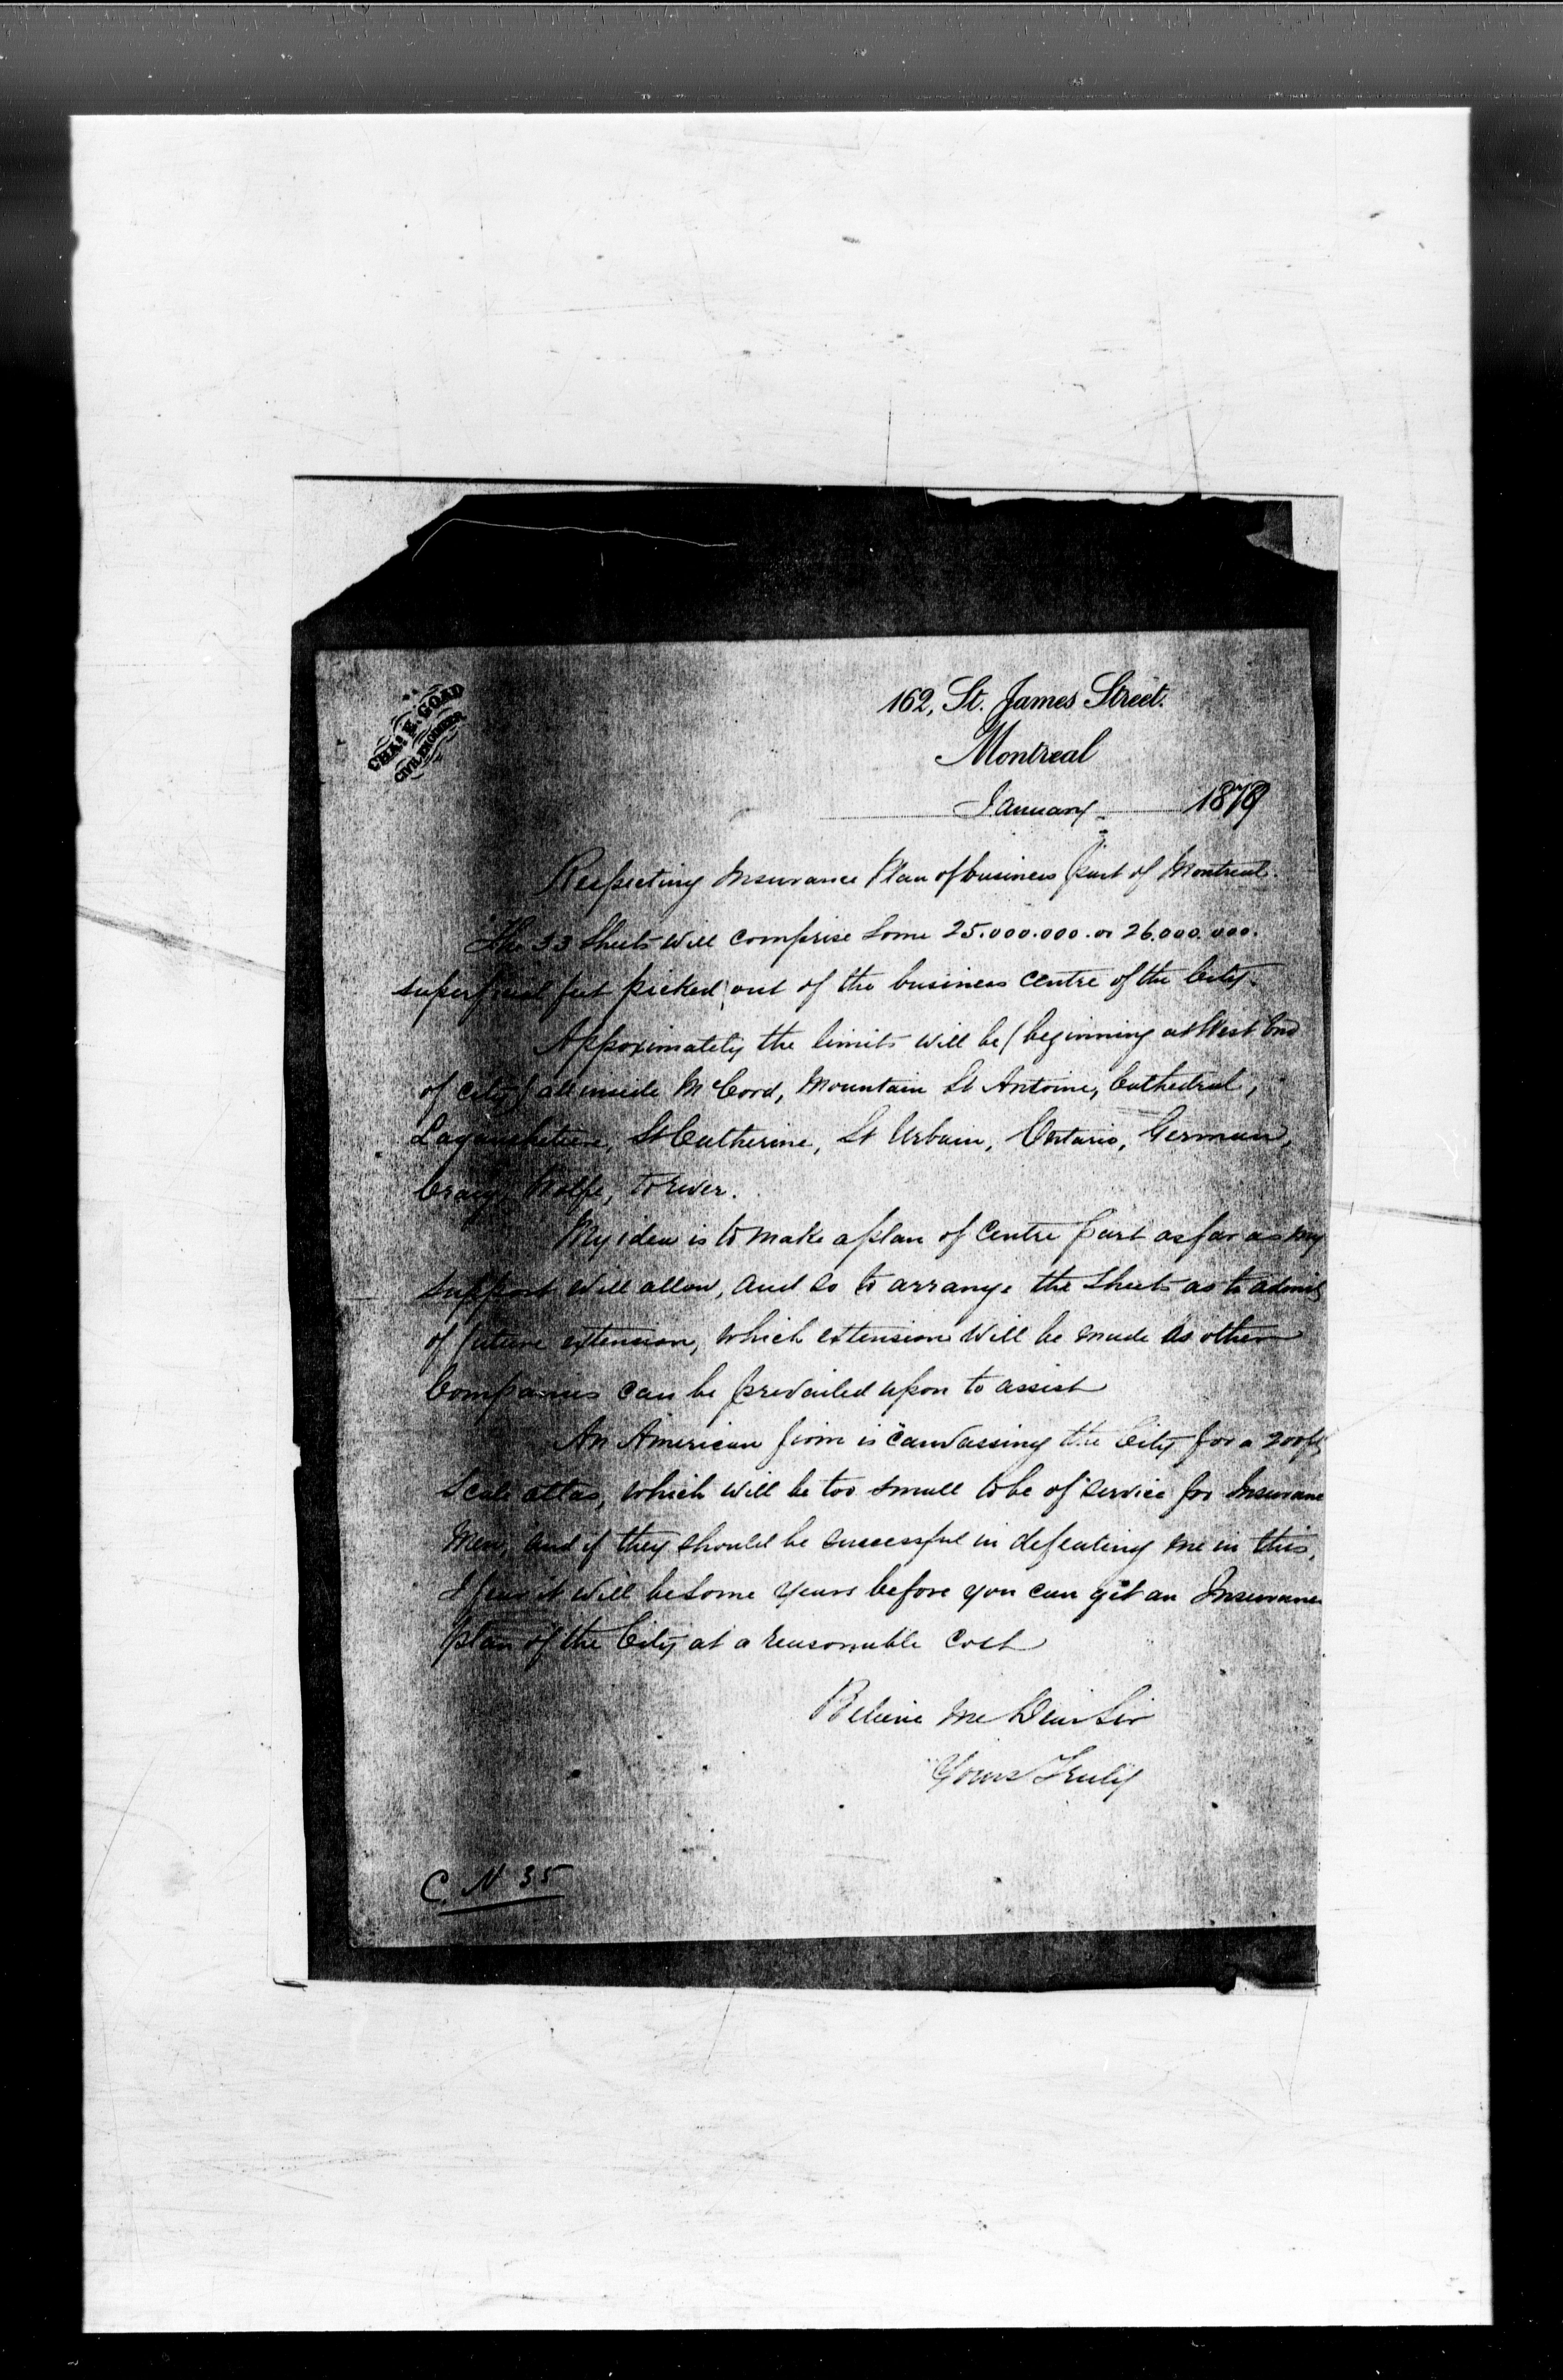 CHAS. E. GOAD
CIVIL ENGINEER
162, St. James Street.
Montreal
January 1879
Respecting Insurance Plan of business part of Montreal.
The 33 Sheets will comprise some 25.000.000. or 26.000.000.
superficial feet picked out of the business centre of the City.
Approximately the limits will be (beginning at West End
of city) all inside McCord, Mountain St Antoine, Cathedral,
Lagauchetiere, St Catherine, St Urbain, Ontario, German,
Craig, Wolfe, to river.
My idea is to make a plan of Centre part as far as my
support will allow, and so to arrange the sheets as to admit
of future extension, which extension will be made as other
Companies can be prevailed upon to assist
An American firm is canvassing the City for a 200 ft
scale atlas, which will be too small to be of service for Insurance
Men, and if they should be successful in defeating me in this,
I fear it will be some years before you can get an Insurance
plan of the City at a reasonable cost
Believe me Dear Sir
Yours Truly
C. N 35